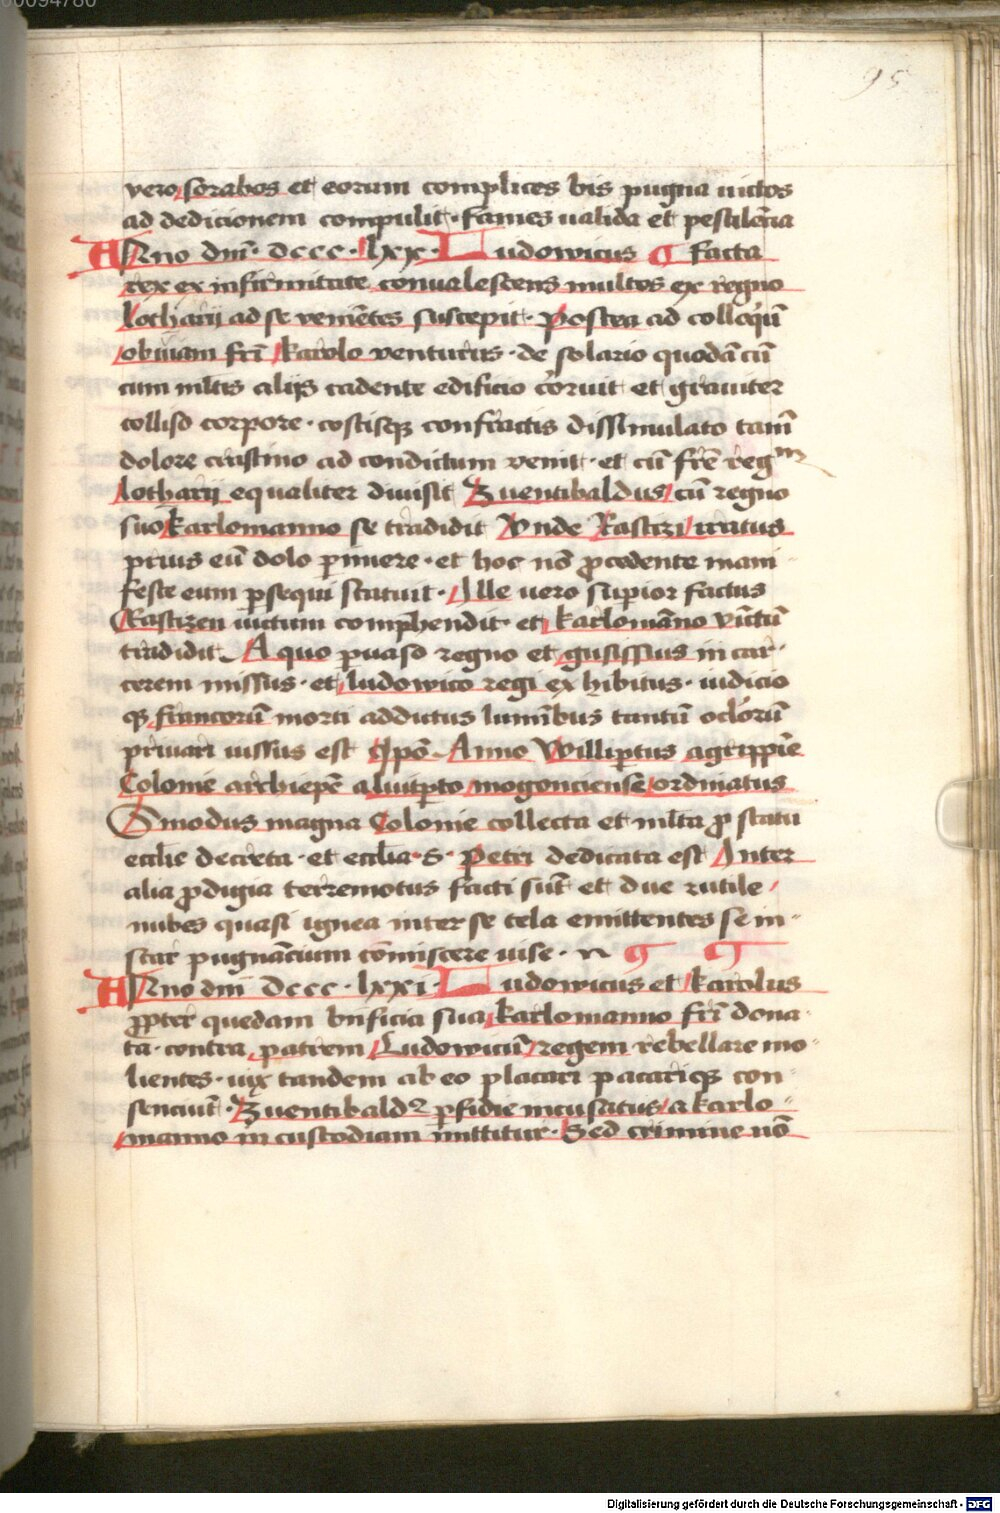 00094780
95
vero sorabos et eorum complices bis pugna uictos
ad dedicionem compulit · fames ualida et pestilēcia
Anno dm̄ · dccc · lxx · Ludowicus ¶ facta
rex ex infirmitate conualescens multos ex regno
Lotharij ad se veniētes suscepit · Postea ad colloq̄iū
obuiam fr̄i karolo venturus · de solario quodā cū
cum ml̄tis alijs cadente edificio cōruit et grauiter
colliso corpore · costisqʒ confractis dissimulato tam̄
dolore crastino ad condictum venit · et cū fr̄e regm̄
lotharij equaliter diuisit Zuentibaldus cū regno
suo karlomanno se tradidit Vnde Rastizi iratus
prius eū dolo ꝑimere · et hoc nō ꝓcedente mani-
feste eum ꝑsequi statuit · Ille uero supior factus
Rastizen uictum comp̄hendit · et karlomāno vīctū
tradidit · A quo ꝑuaso regno et gusissius in car-
cerem missus · et ludowico regi exhibitus · iudicio
qʒ francorū morti addutus luminibus tantū oclōrū
priuari iussus est Ipō Anno Willip̄tus agrippīe
Colonie archiepē a luitp̄to mogonciense ordinatus
Sinodus magna Colonie collecta et ml̄ta ꝓ statu
eccl̄ie decreta · et eccl̄ia · S · Petri dedicata est Inter
alia ꝓdigia terremotus facti sūt et due rutile
nubes quasi ignea inter se tela emittentes se in-
star pugnācium cōmiscere uise · n ¶ ¶
Anno dm̄ dccc · lxxi · Ludowicus et karolus
ꝓpter quedam bn̄ficia sua karlomanno fr̄i dona-
ta · contra patrem Ludowicū regem rebellare mo-
lientes · uix tandem ab eo placari pacariqʒ con-
senciūt · Zuentibaldꝰ ꝑfidie incusatus a karlo-
manno in custodiam mittitur · Sed crimine nō
Digitalisierung gefördert durch die Deutsche Forschungsgemeinschaft - DFG